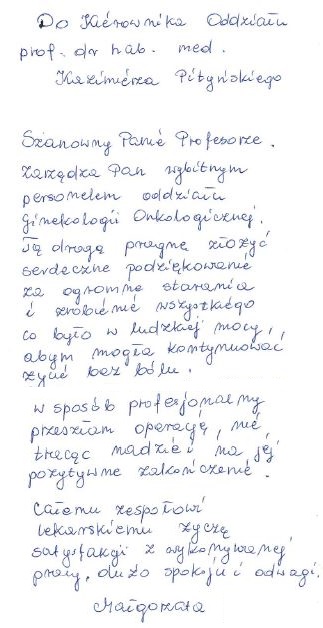 Do Kierownika Oddziału
prof. dr hab. med.
Kazimierza Pityńskiego
Szanowny Panie Profesorze.
Zarządza Pan wybitnym
personelem oddziału
Ginekologii Onkologicznej.
Tą drogą pragnę złożyć
serdeczne podziękowanie
za ogromne starania
i zrobienie wszystkiego
co było w ludzkiej mocy,
abym mogła kontynuować
życie bez bólu.
W sposób profesjonalny
przeszłam operację, nie
tracąc nadziei na jej
pozytywne zakończenie.
Całemu zespołowi
lekarskiemu życzę
satysfakcji z wykonywanej
pracy, dużo spokoju i odwagi.
Małgorzata